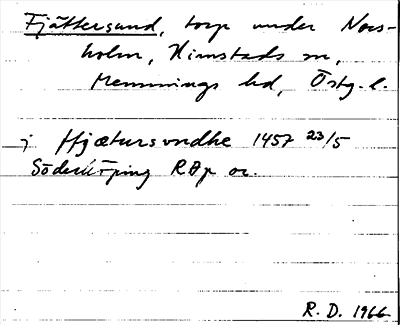 Fjättersund, torp under Nors-
holm, Kimstads sn,
Memmings hd, Östg. l.
j ffjætursvndhe 1457 23/5
Söderköping RAp or.
R. D. 1966